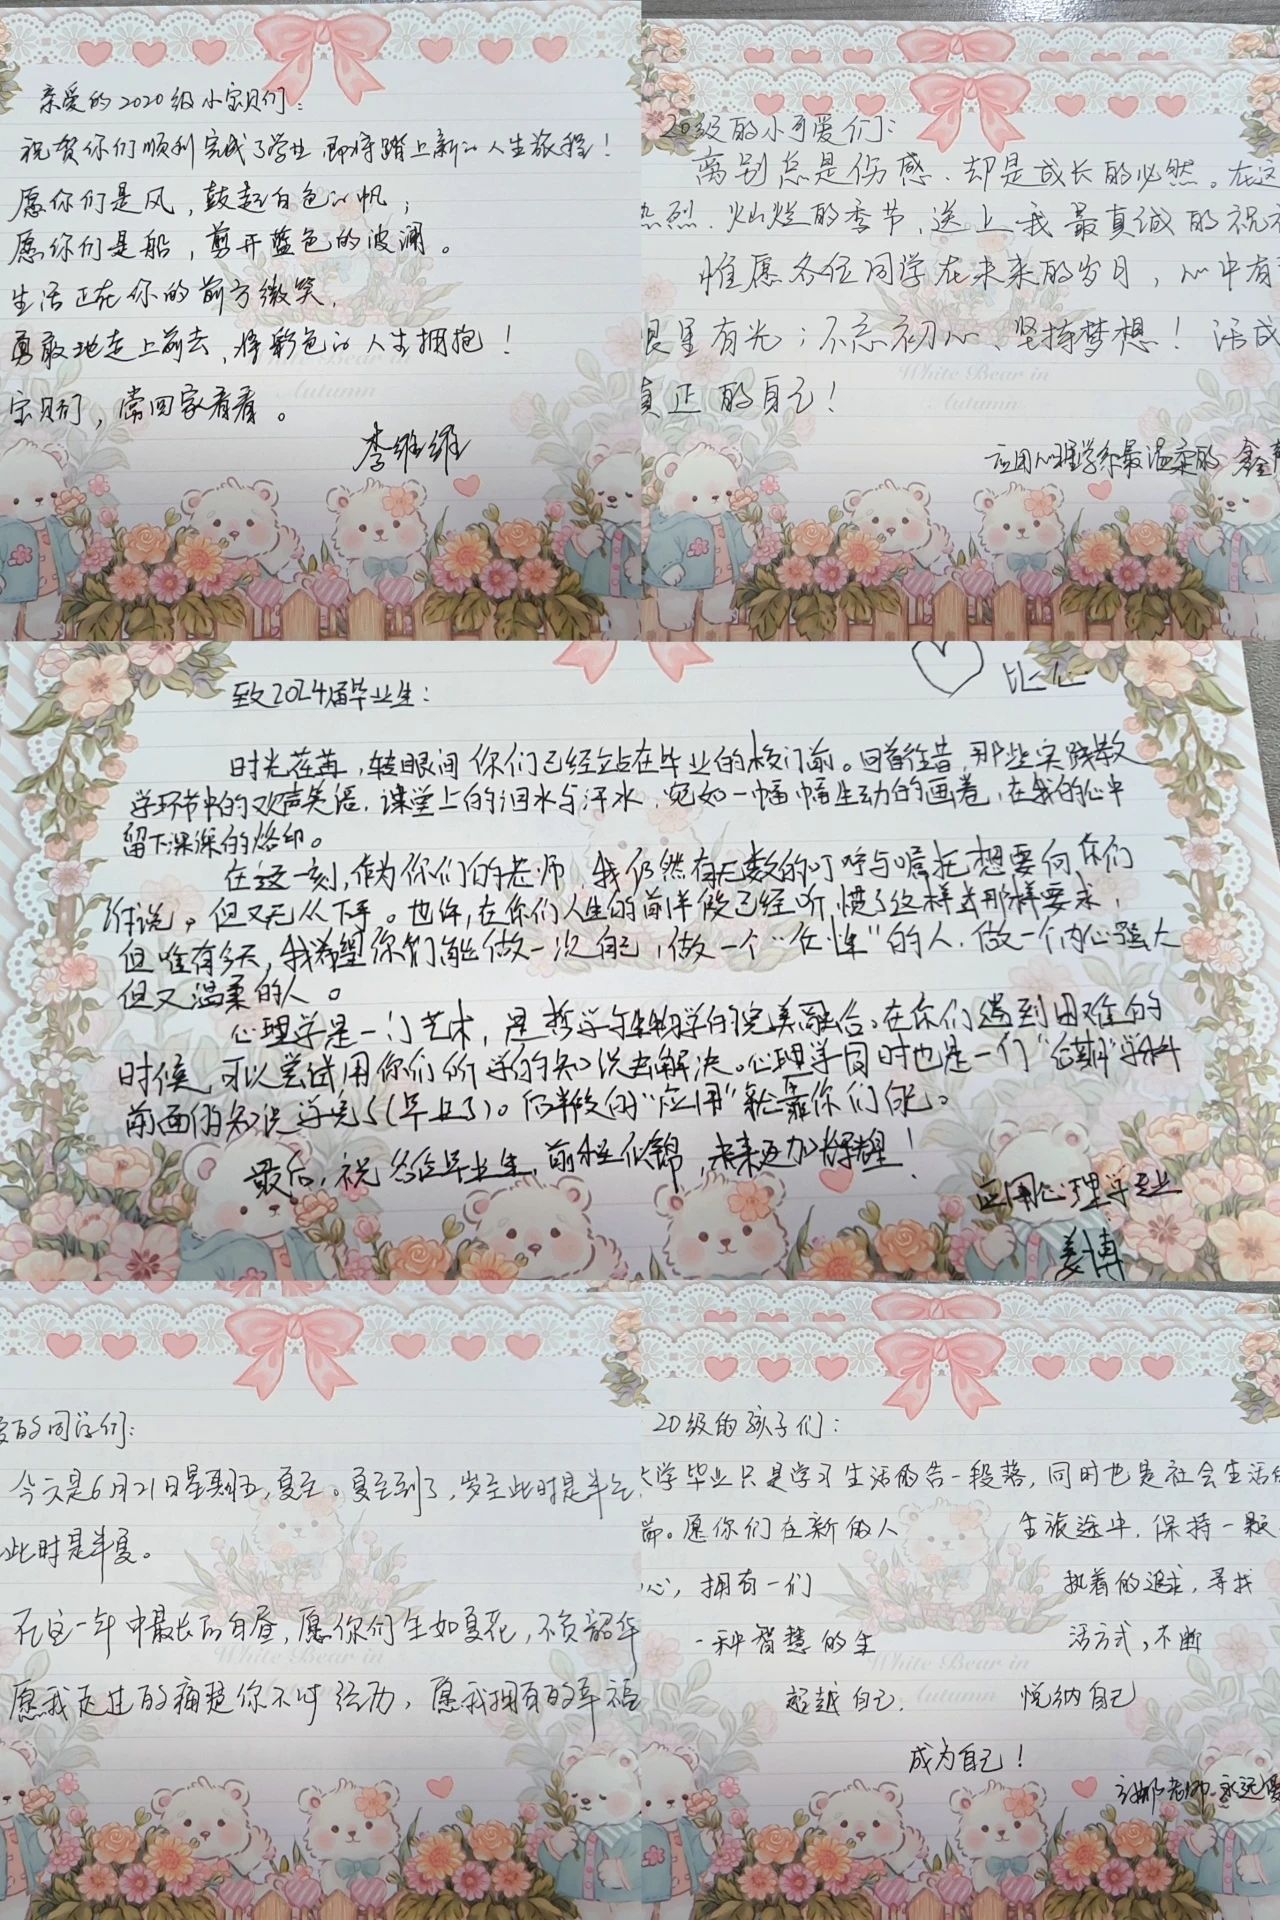 亲爱的2020级小宝贝们：
祝贺你们顺利完成了学业，即将踏上新的人生旅程！
愿你们是风，鼓起白色的帆；
愿你们是船，剪开蓝色的波澜。
生活正在你的前方微笑，
勇敢地走上前去，将彩色的人生拥抱！
宝贝们，常回家看看。
李维维
20级的小可爱们：
离别总是伤感，却是成长的必然。在这
热烈、灿烂的季节，送上我最真诚的祝
惟愿各位同学在未来的岁月，心中有
眼里有光；不忘初心、坚持梦想！活成
真正的自己！
应用心理学系最温柔的
White Bear in
Autumn
比心
致2024届毕业生：
时光荏苒，转眼间你们已经站在毕业的校门前。回首往昔，那些实践教
学环节中的欢声笑语，课堂上的泪水与汗水，宛如一幅幅生动的画卷，在我的心中
留下深深的烙印。
在这一刻，作为你们的老师，我仍然有无数的叮咛与嘱托想要向你们
诉说，但又无从下手。也许，在你们人生的前半段已经听惯了这样或那样要求，
但唯有今天，我希望你们能做一次自己，做一个“任性”的人，做一个内心强大
但又温柔的人。
心理学是一门艺术，是哲学与生物学的完美融合。在你们遇到困难的
时候，可以尝试用你们所学的知识去解决。心理学同时也是一门 学科
前面的知识学完了（毕业了）。后半段的“应用”就靠你们了。
最后，祝各位毕业生，前程似锦，未来更加辉煌！
应用心理学专业
姜博
爱的同学们：
今天是6月21日星期五，夏至。夏至到了，岁至此时是半
此时是半夏。
在这一年中最长的白昼，愿你们生如夏花，不负韶华
愿我走过的痛楚你不曾经历，愿我拥有的幸福
White Bear in
20级的孩子们：
大学毕业只是学习生活的告一段落，同时也是社会生活的
始。愿你们在新的人 生旅途中，保持一颗
心，拥有一们 执着的追求，寻找
一种智慧的生 活方式，不断
超越自己， 悦纳自己
成为自己！
老师，永远爱
White Bear in
Autumn